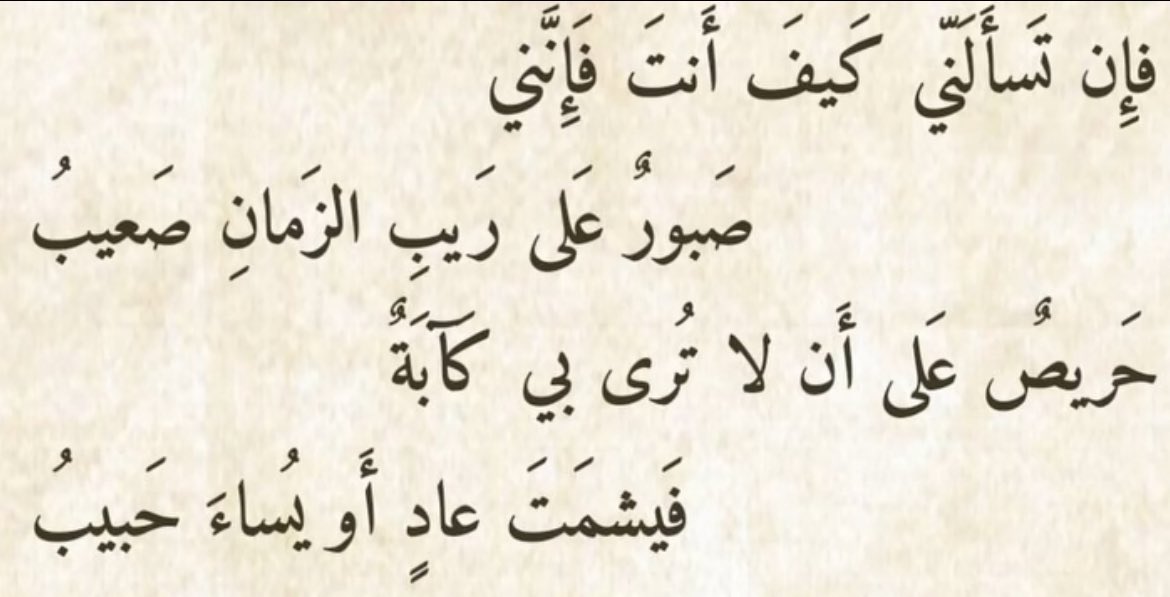 فإِن تَسأَلَنّي كَيفَ أَنتَ فَإِنَّني
صَبورٌ عَلى رَيبِ الزَمانِ صَعيبُ
حَريصٌ عَلى أَن لا تُرى بي كَآبَةٌ
فَيَشمَتَ عادٍ أَو يُساءَ حَبيبُ